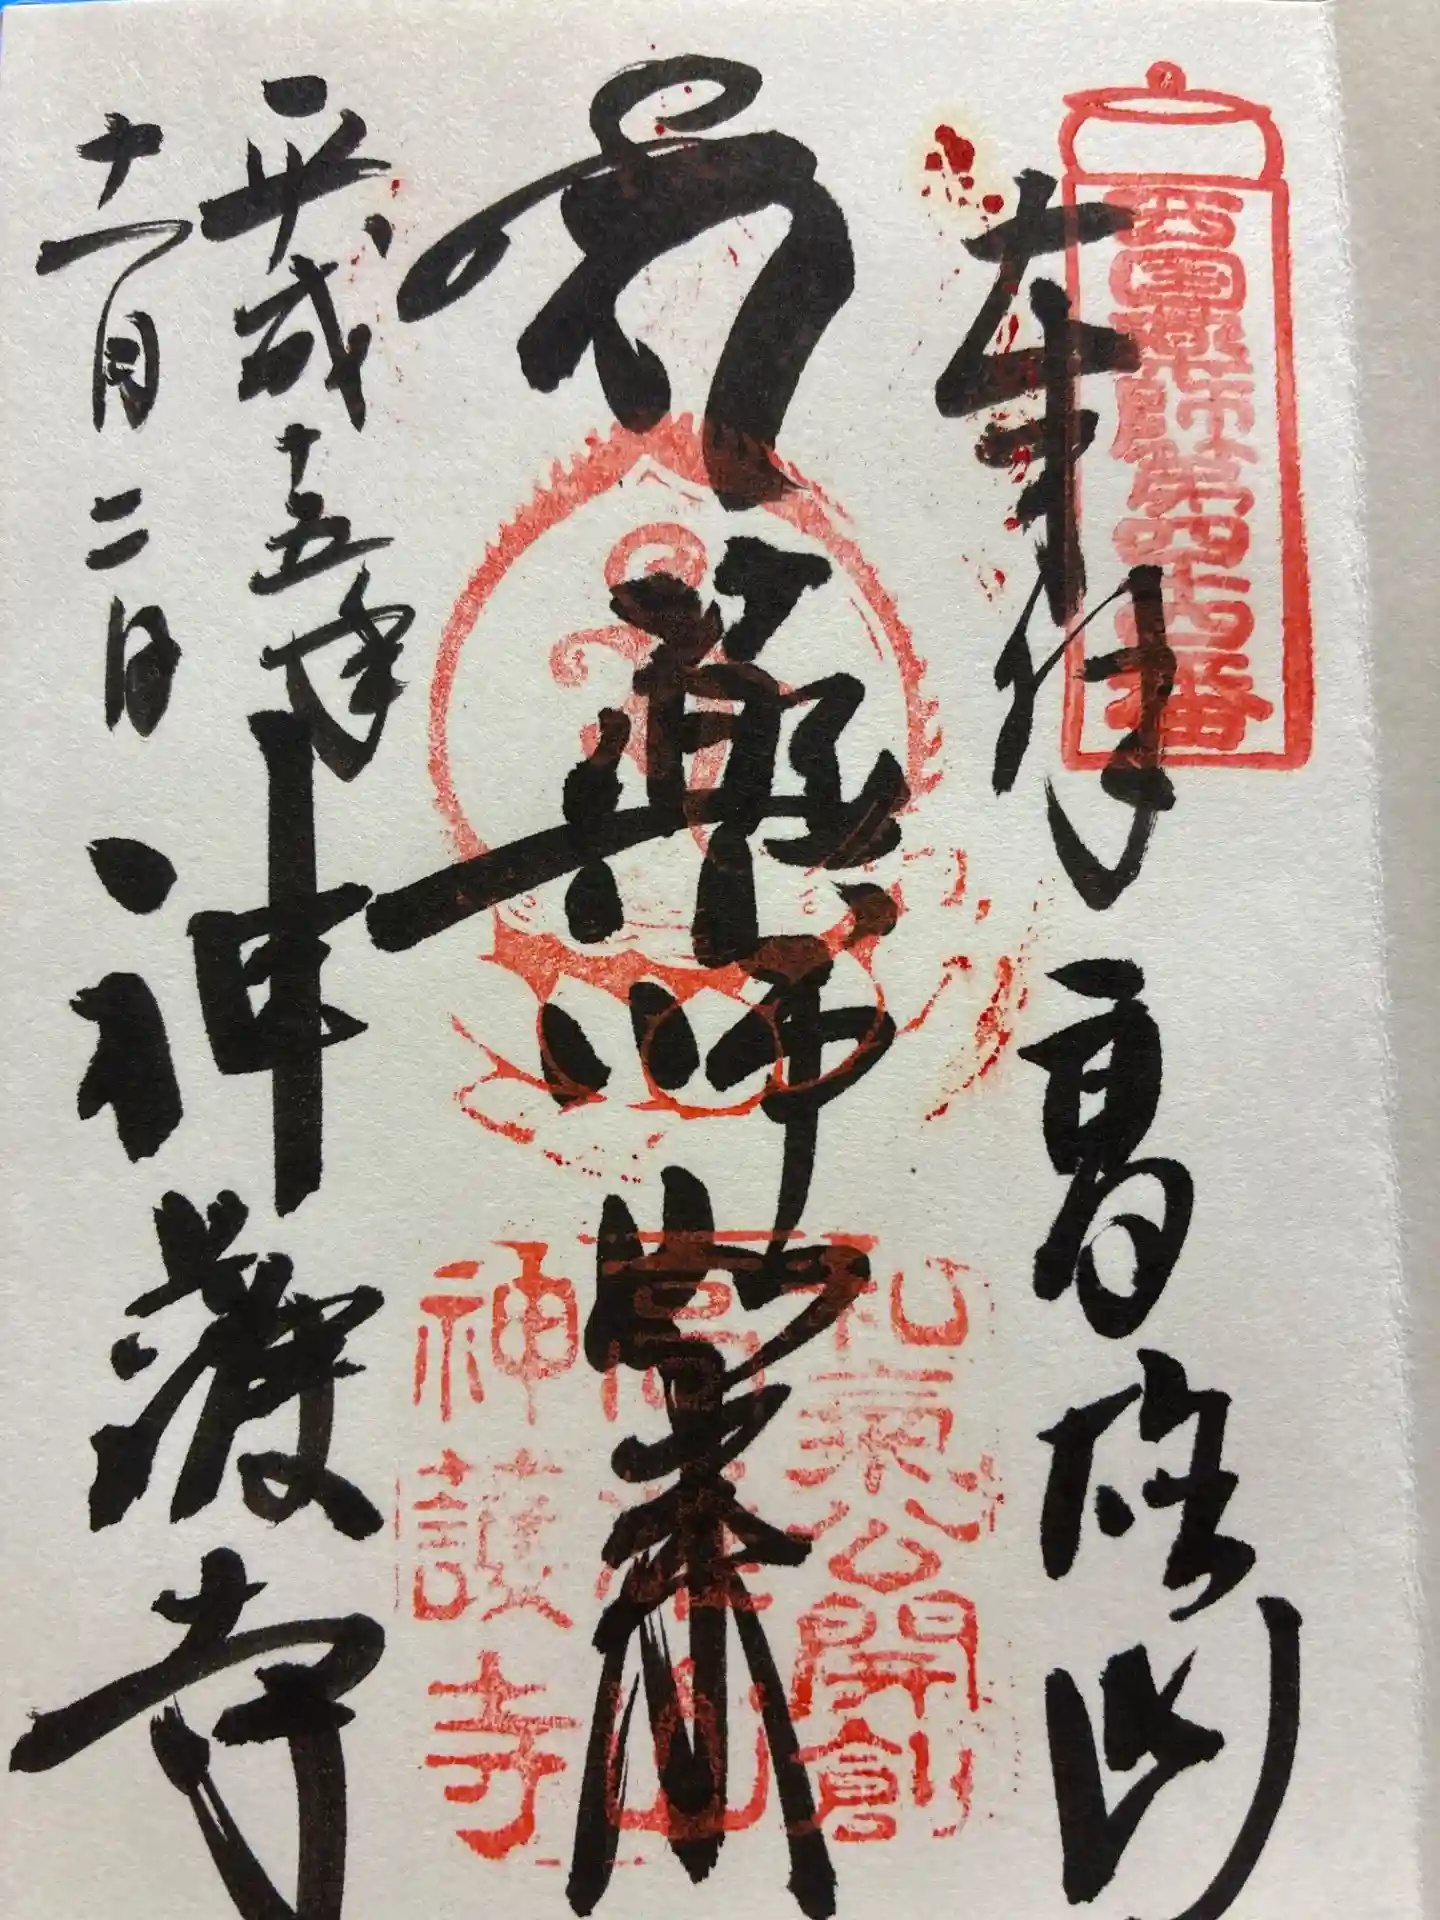 西國薬師第四十四番
奉拝 高雄山
薬師如来
和氣公開創
高雄山
神護寺
平成十五年
十一月二日
神護寺